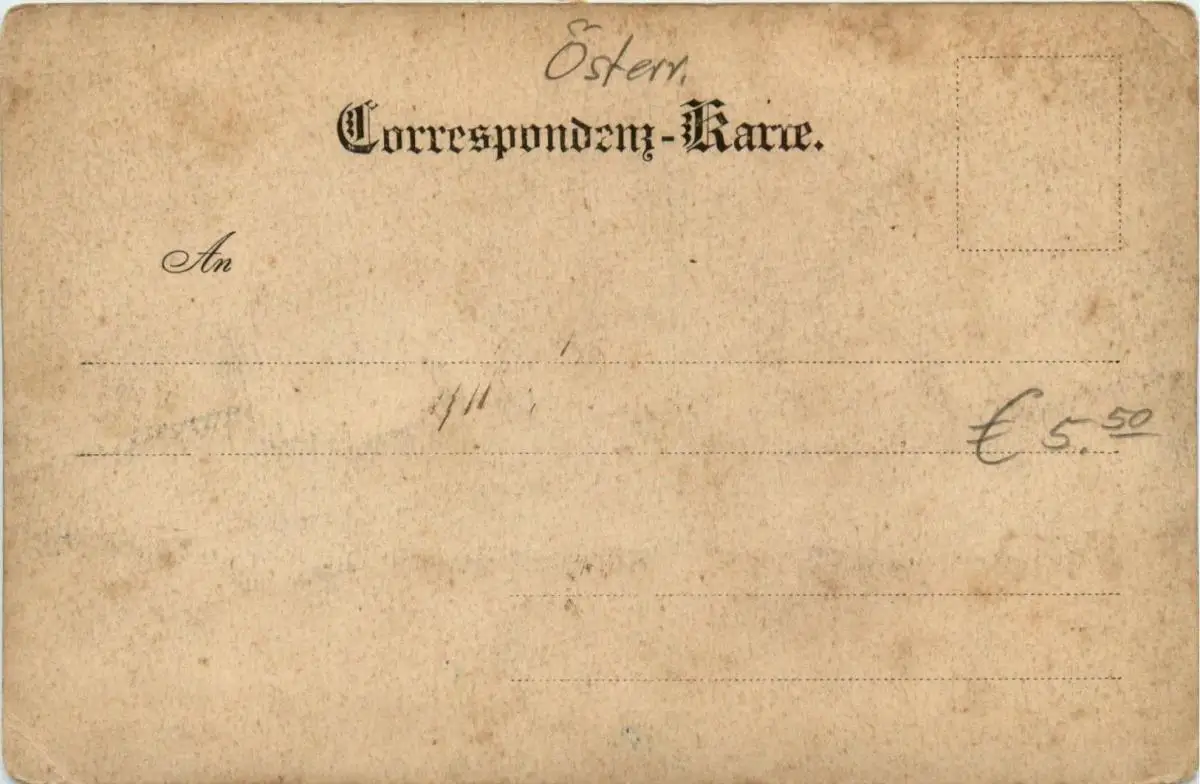 Österr.
Correspondenz-Karte.
An
€ 5.50